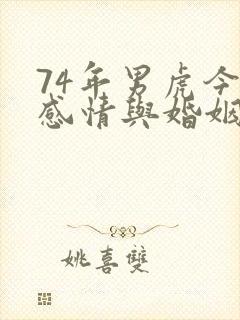 74年男虎今
感情與婚姻
姚喜雙